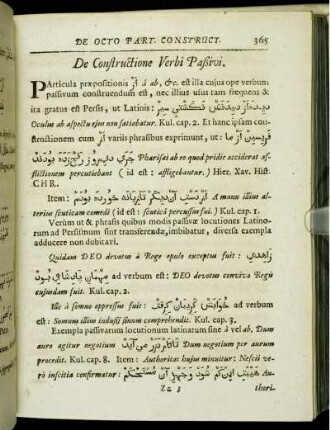 DE OCTO PART. CONSTRUCT. 365
De Constructione Verbi Passivi.
PArticula præpositionis از à ab, &c. est illa cujus ope verbum
passivum construendum est, nec illius usus tam frequens &
ita gratus est Persis, ut Latinis:
Oculus ab aspectu ejus non satiabatur. Kul. cap. 2. Et hanc ipsam con-
structionem cum از variis phrasibus exprimunt, ut:
Pharisæi ab eo quod pridie acciderat af-
flictionem percutiebant ( id est: affligebantur.) Hier. Xav. Hist.
CHR.
Item: از دست آن ديگر تازيانه خورده بودم A manu illius al-
terius scuticam comedi (id est: scuticâ percussus fui.) Kul. cap. 1.
Verum ut & phrasis quibus modis passivæ locutiones Latino-
rum ad Persismum sint transferendæ, imbibatur, diversa exempla
adducere non dubitavi.
Quidam DEO devotus à Rege epulo exceptus fuit: زاهدي
مهمان پادشاي بود ad verbum est: DEO devotus conviva Regis
cujusdam fuit. Kul. cap. 2.
Ille à somno oppressus fuit: خوابش گريبان گرفت ad verbum
est: Somnus illius indusii sinum comprehendit. Kul. cap. 3.
Exempla passivarum locutionum latinarum sine à vel ab. Dum
auro agitur negotium Dum negotium per aurum
procedit. Kul. cap. 8. Item: Authoritas hujus minuitur: Nescii ve-
rò inscitia confirmatur: Au-
Zz 3 thori.